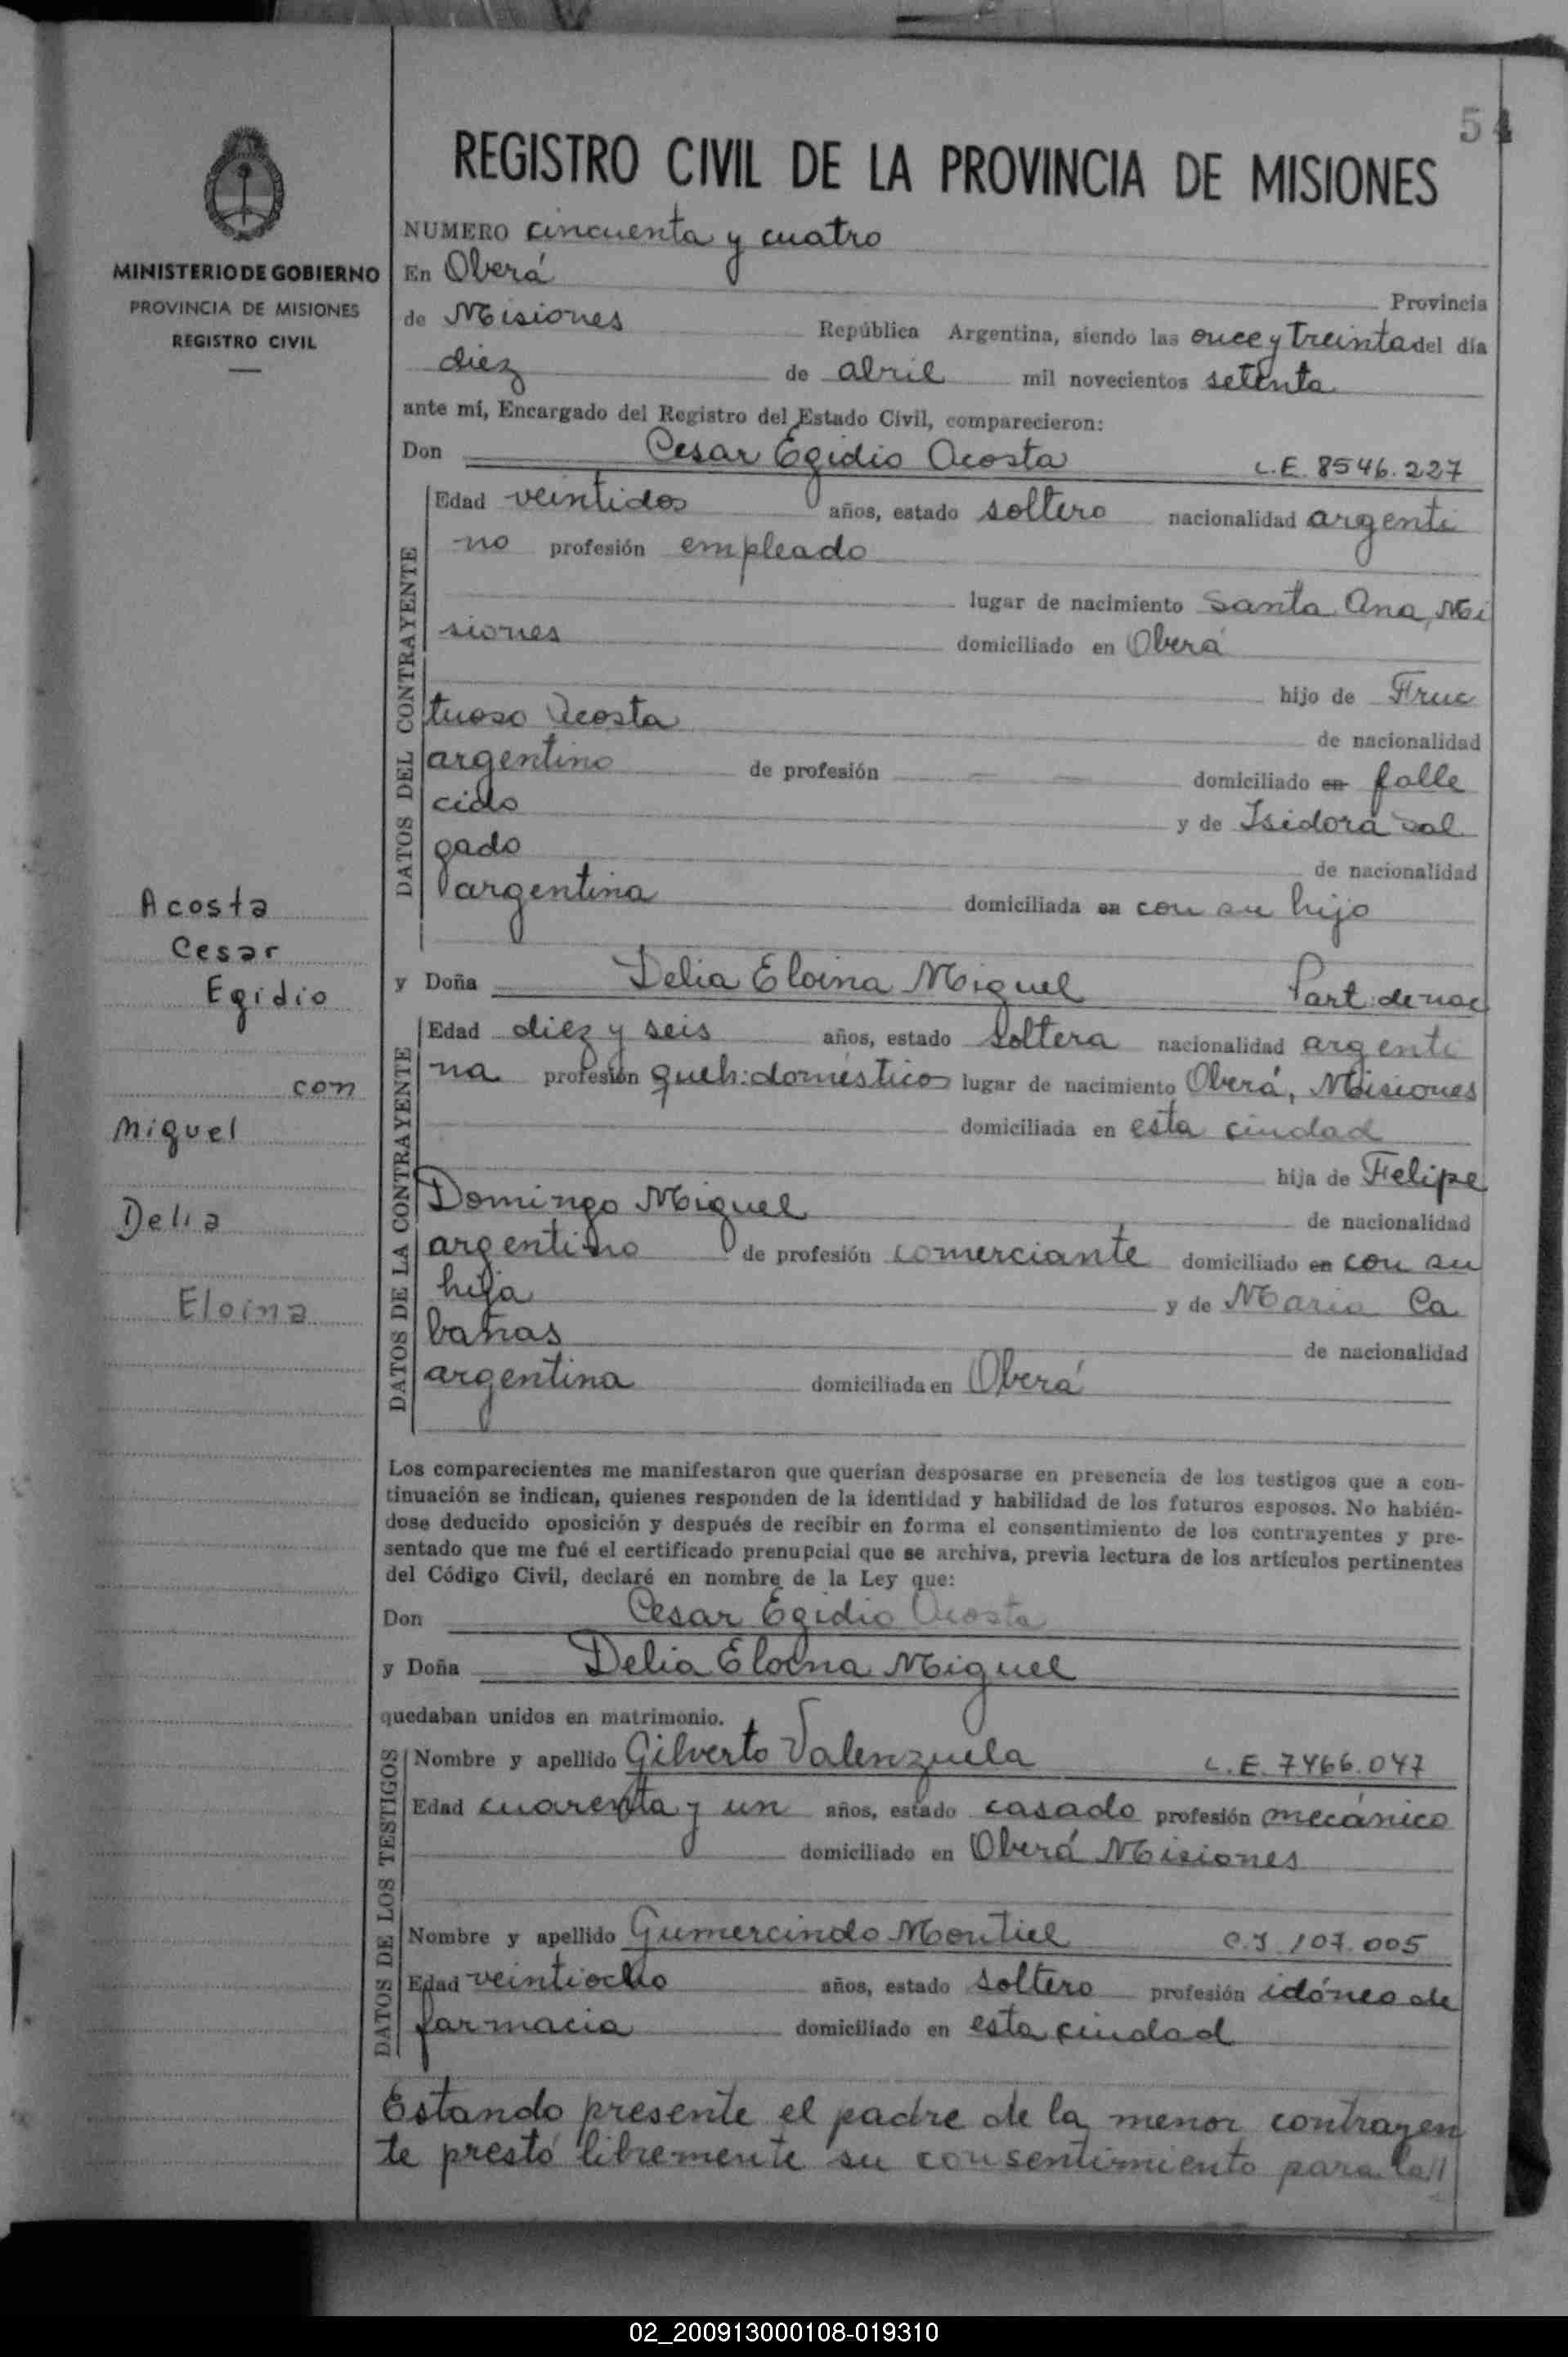 54
REGISTRO CIVIL DE LA PROVINCIA DE MISIONES
MINISTERIO DE GOBIERNO
PROVINCIA DE MISIONES
REGISTRO CIVIL
NUMERO cincuenta y cuatro
En Oberá Provincia
de Misiones República Argentina, siendo las once y treinta del día
diez de abril mil novecientos setenta
ante mí, Encargado del Registro del Estado Civil, comparecieron:
Don Cesar Egidio Acosta L.E. 8546.227
DATOS DEL CONTRAYENTE
Edad veintidos años, estado soltero nacionalidad argenti
no profesión empleado
lugar de nacimiento Santa Ana, Mi
siones domiciliado en Oberá
hijo de Fruc
tuoso Acosta de nacionalidad
argentino de profesión — — domiciliado en falle
cido y de Isidora Sal
gado de nacionalidad
argentina domiciliada en con su hijo
y Doña Delia Eloina Miguel Part: de nac
DATOS DE LA CONTRAYENTE
Edad diez y seis años, estado soltera nacionalidad argenti
na profesión queh: domésticos lugar de nacimiento Oberá, Misiones
domiciliada en esta ciudad
hija de Felipe
Domingo Miguel de nacionalidad
argentino de profesión comerciante domiciliado en con su
hija y de Maria Ca
bañas de nacionalidad
argentina domiciliada en Oberá
Acosta
Cesar
Egidio
con
Miguel
Delia
Eloina
Los comparecientes me manifestaron que querían desposarse en presencia de los testigos que a con-
tinuación se indican, quienes responden de la identidad y habilidad de los futuros esposos. No habién-
dose deducido oposición y después de recibir en forma el consentimiento de los contrayentes y pre-
sentado que me fué el certificado prenupcial que se archiva, previa lectura de los artículos pertinentes
del Código Civil, declaré en nombre de la Ley que:
Don Cesar Egidio Acosta
y Doña Delia Eloina Miguel
quedaban unidos en matrimonio.
DATOS DE LOS TESTIGOS
Nombre y apellido Gilverto Valenzuela L.E. 7466.047
Edad cuarenta y un años, estado casado profesión mecánico
domiciliado en Oberá Misiones
Nombre y apellido Gumercindo Montiel C.I 107.005
Edad veintiocho años, estado soltero profesión idóneo de
farmacia domiciliado en esta ciudad
Estando presente el padre de la menor contrayen
te prestó libremente su consentimiento para la//
02_200913000108-019310